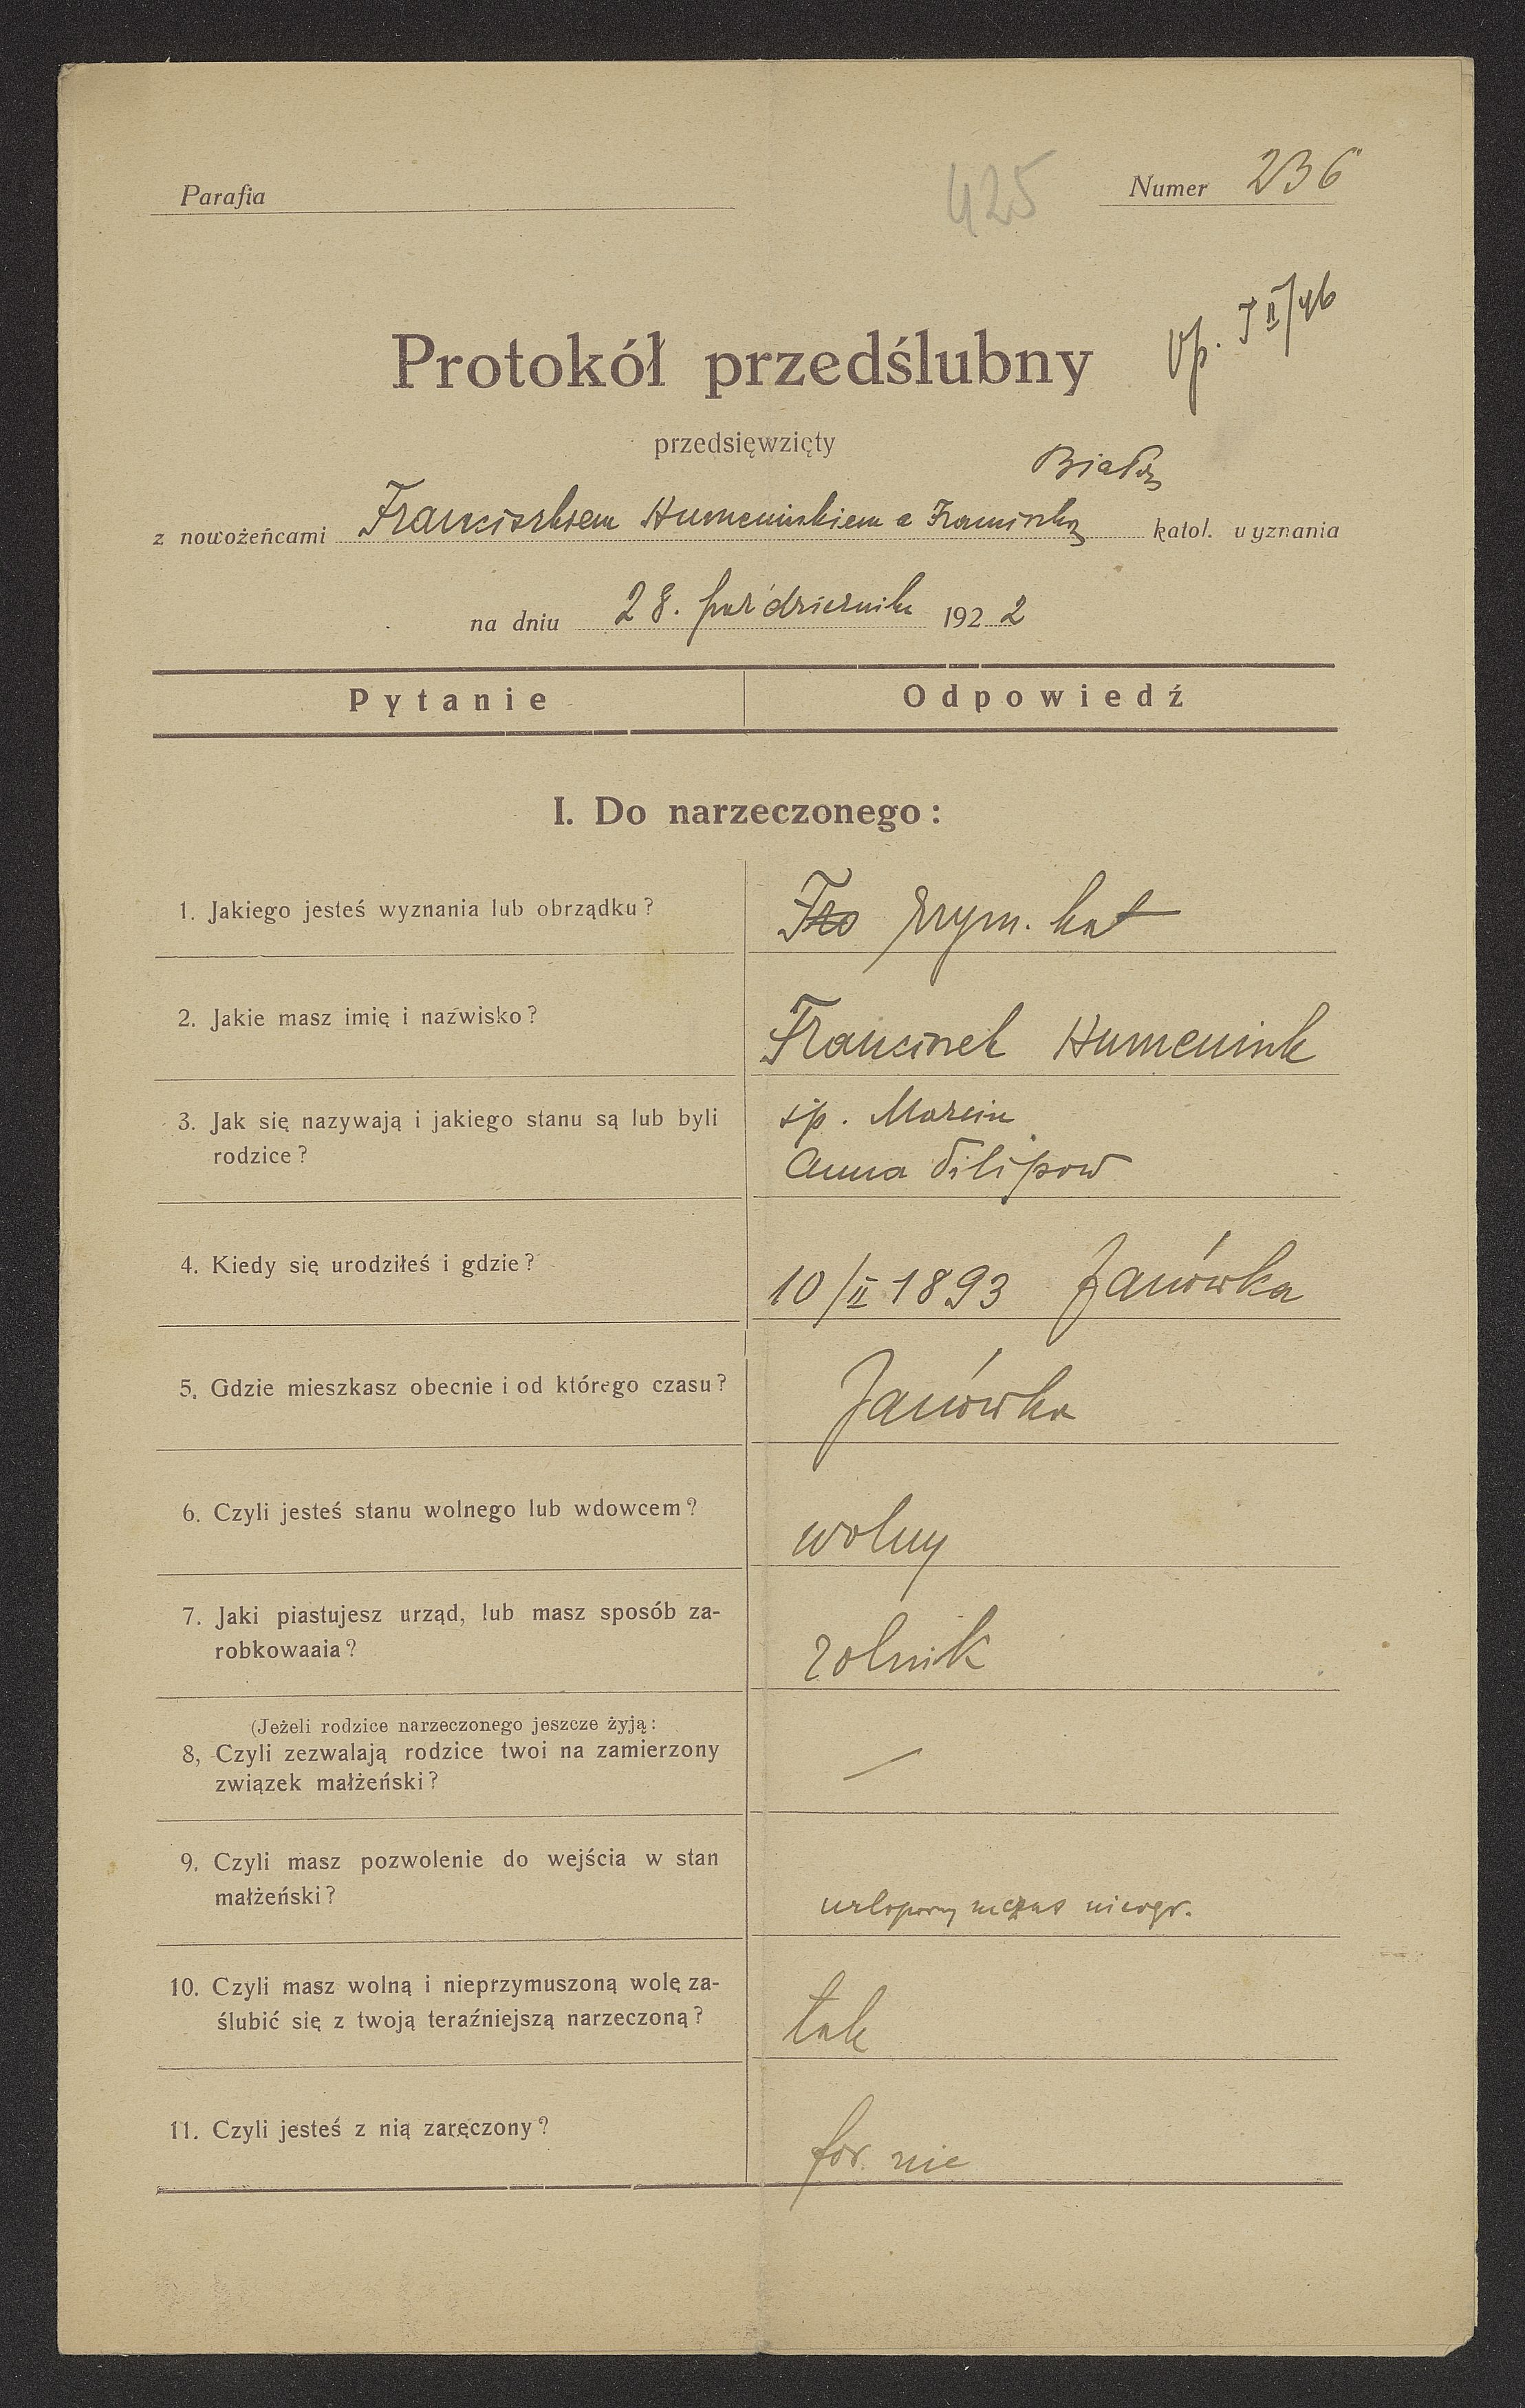 Parafia
425
Numer 236
Vp. I II/46
Protokół przedślubny
przedsięwzięty
Białą
z nowożeńcami Franciszkiem Humeniukiem a Franciszką katol. wyznania
na dniu 28. października 1922
Pytanie Odpowiedź
I. Do narzeczonego:
1. Jakiego jesteś wyznania lub obrządku? Fra rzym. kat
2. Jakie masz imię i nazwisko? Franciszek Humeniuk
3. Jak się nazywają i jakiego stanu są lub byli śp. Marcin
rodzice? Anna Filipow
4. Kiedy się urodziłeś i gdzie? 10/II 1893 Janówka
5. Gdzie mieszkasz obecnie i od którego czasu? Janówka
6. Czyli jesteś stanu wolnego lub wdowcem? wolny
7. Jaki piastujesz urząd, lub masz sposób za-
robkowaaia? rolnik
(Jeżeli rodzice narzeczonego jeszcze żyją:
8, Czyli zezwalają rodzice twoi na zamierzony —
związek małżeński?
9. Czyli masz pozwolenie do wejścia w stan
małżeński? urlopowany czas nieogr.
10. Czyli masz wolną i nieprzymuszoną wolę za-
ślubić się z twoją teraźniejszą narzeczoną? tak
11. Czyli jesteś z nią zaręczony? for. nie